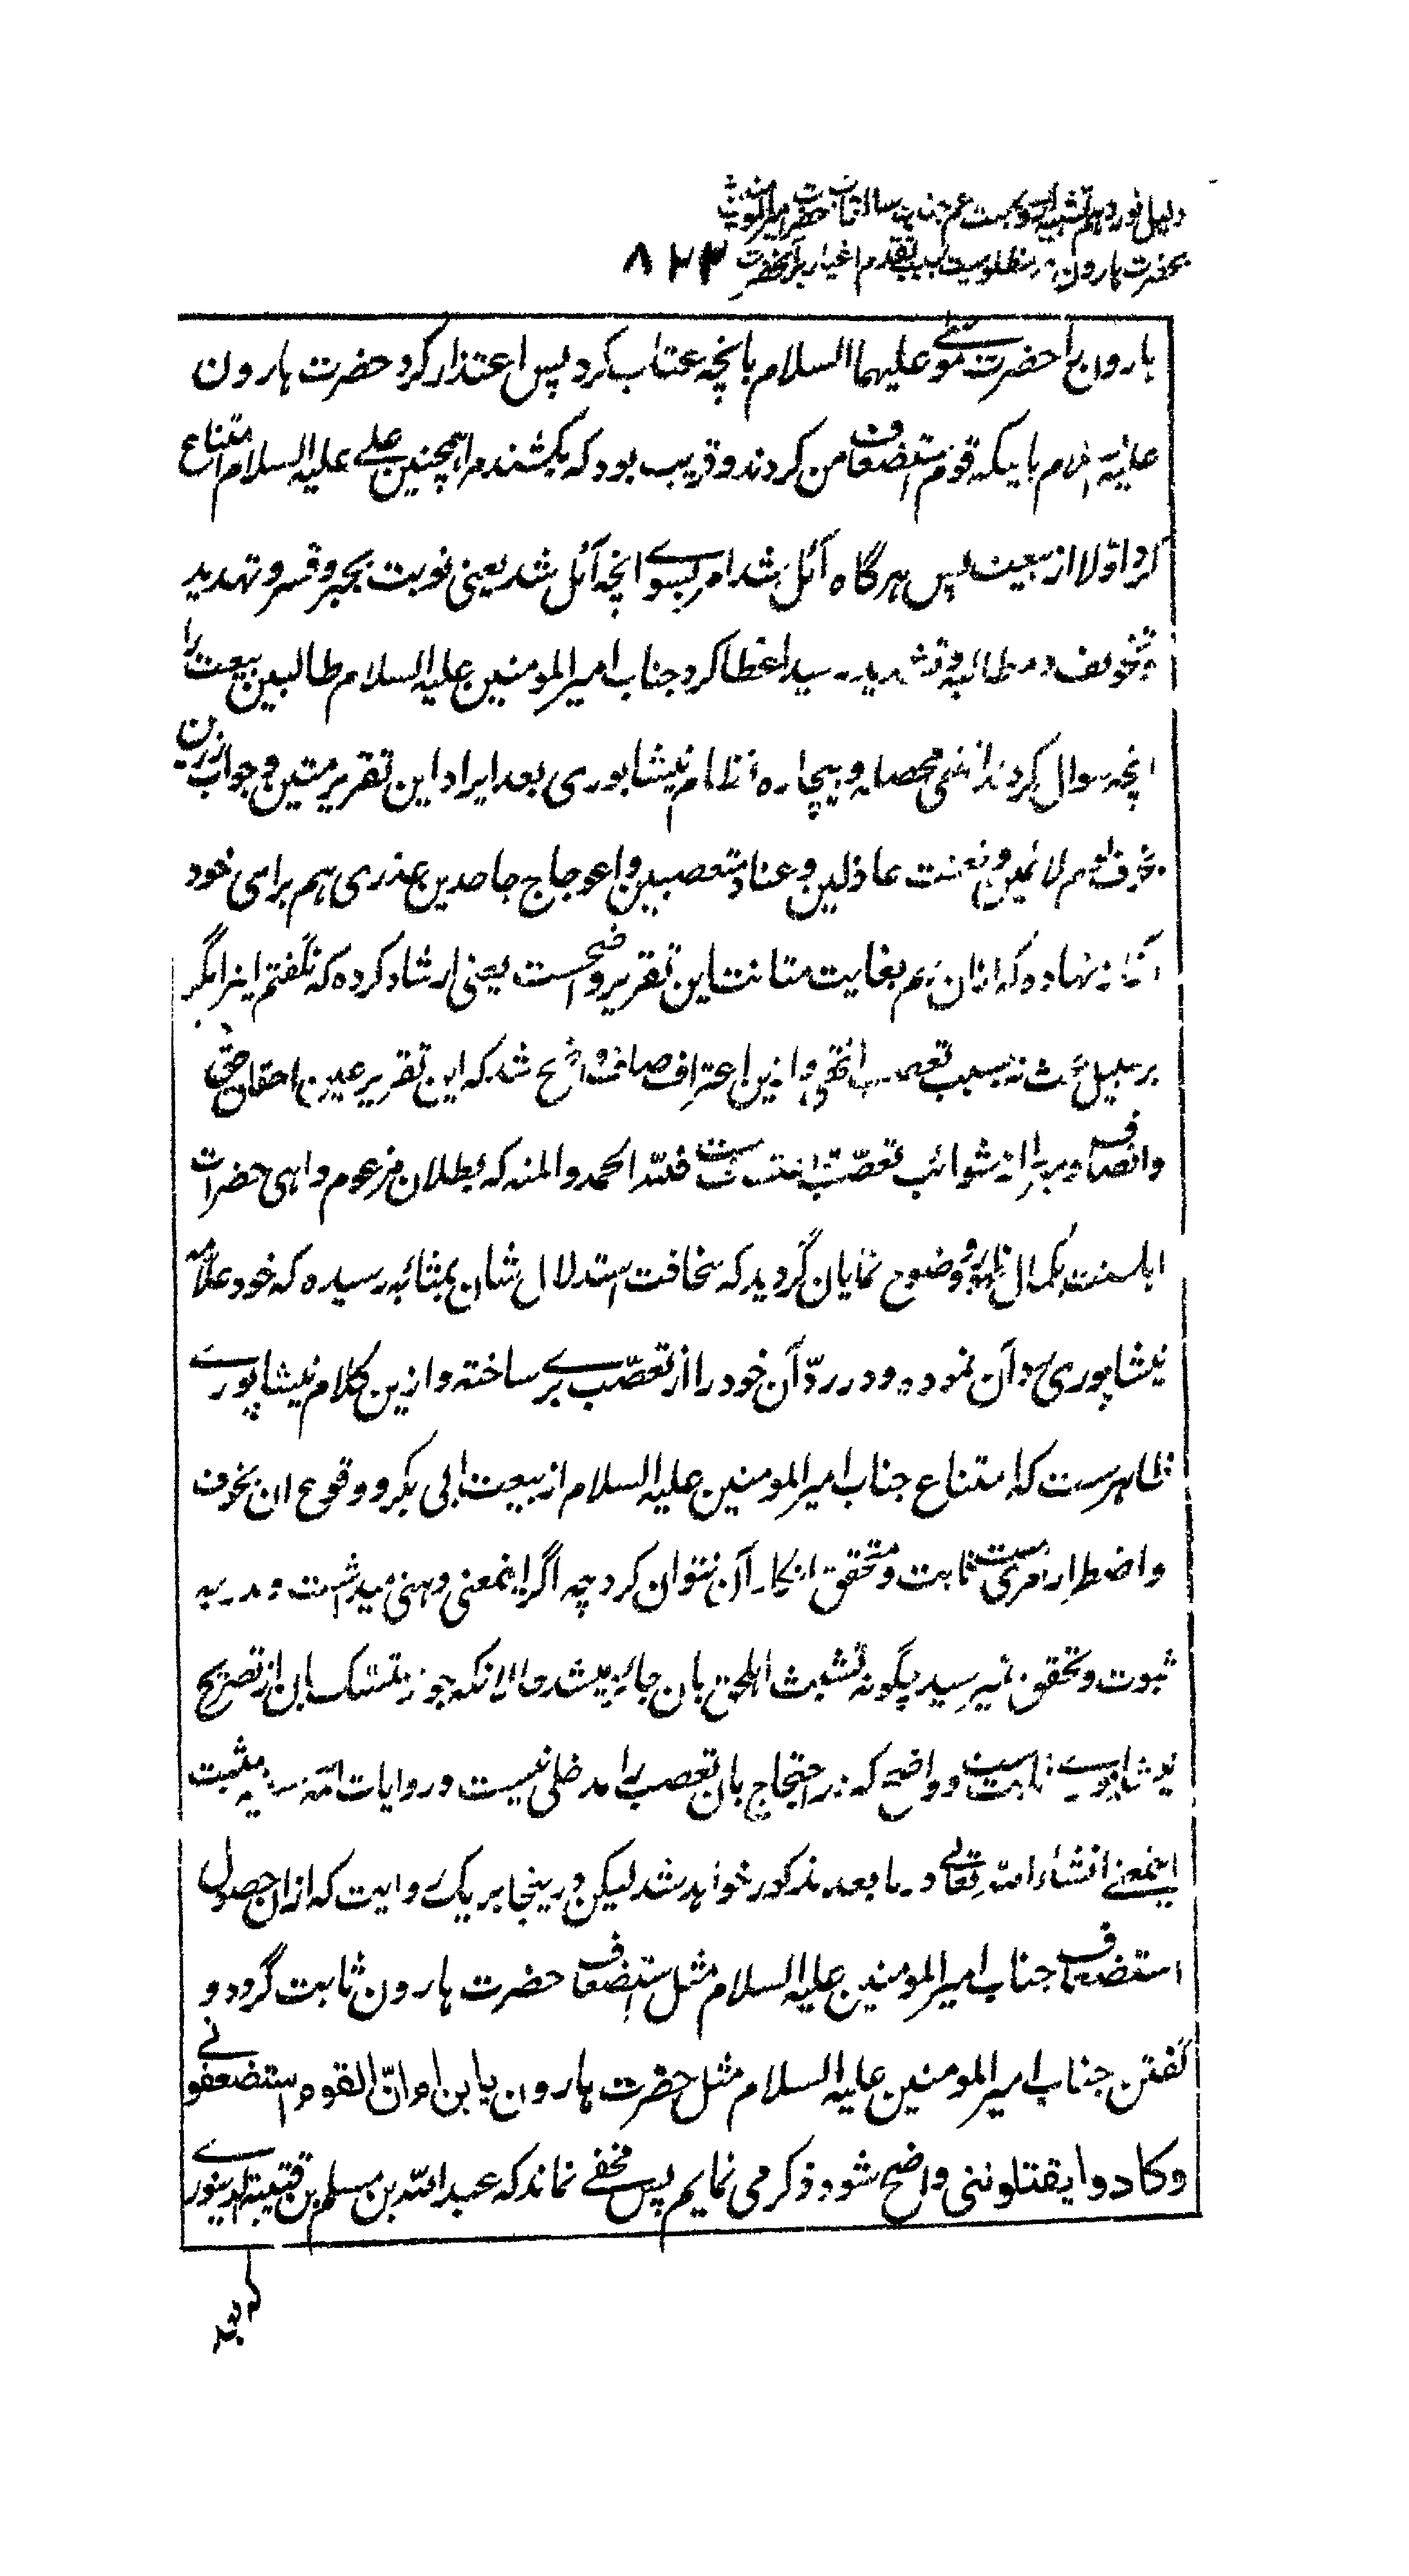 دلیل نوزدهم تشبیه جناب رسالتمآب حضرت امیرالمومنین
بحضرت هارون در مظلومیت بسبب تقدم اغیار بر آنحضرت ۸۲۳
هارون را حضرت موسی علیهما السلام بانچه عتاب کرد پس اعتذار کرد حضرت هارون
علیه السلام باینکه قوم استضعاف من کردند و قریب بود که بکشند مرا همچنین علی علیه السلام امتناع
کرد اولا از بیعت پس هرگاه آئل شد امر بسوی انچه آئل شد یعنی نوبت بجبر و قسر و تهدید
و تخویف و مطالبه و تشدید رسید اعطا کرد جناب امیرالمومنین علیه السلام طالبین بیعت را
انچه سوال کردند انتهی محصله و بیچاره نظام نیشابوری بعد ایراد این تقریر متین و جواب رزین
بخوف لائمین و عاذلین و عناد متعصبین و اعوجاج جاحدین عذری هم برای خود
نهاده که ازان هم بغایت متانت این تقریر واضحست یعنی ارشاد کرده که نگفتم اینرا مگر
بر سبیل بحث نه بسبب تعصب انتهی و ازین اعتراف صاف واضح شد که این تقریر عین احقاق حق
و انصاف و مبرا از شوائب تعصب و اعتساف ست فلله الحمد و المنه که بطلان مزعوم واهی حضرات
اهلسنت بکمال ظهور و وضوح نمایان گردید که سخافت استدلال شان بمثابه رسیده که خود علامه
نیشاپوری رد آن نموده و در ردّ آن خود را از تعصّب بری ساخته و ازین کلام نیشاپوری
ظاهرست که امتناع جناب امیرالمومنین علیه السلام از بیعت ابی بکر و وقوع ان بخوف
و اضطرار امریست ثابت و متحقق انکار آن نتوان کرد چه اگر اینمعنی وهنی میداشت و مدرجه
ثبوت و تحقق نمیرسید چگونه تشبث اهلحق بان جائز میشد حالانکه جواز تمسّک بان از تصریح
نیشاپوری ثابت ست و واضح که در احتجاج بان تعصب را مدخلی نیست و روایات ائمه سنیه مثبت
اینمعنی انشاء الله تعالی در ما بعد مذکور خواهد شد لیکن درینجا بر یک روایت که ازان حصول
استضعاف جناب امیرالمومنین علیه السلام مثل استضعاف حضرت هارون ثابت گردد و
گفتن جناب امیرالمومنین علیه السلام مثل حضرت هارون یا بن ام انّ القوم استضعفونی
و کادوا یقتلوننی واضح شود ذکر می نمایم پس مخفی نماند که عبد الله بن مسلم بن قتیبة الدینوری